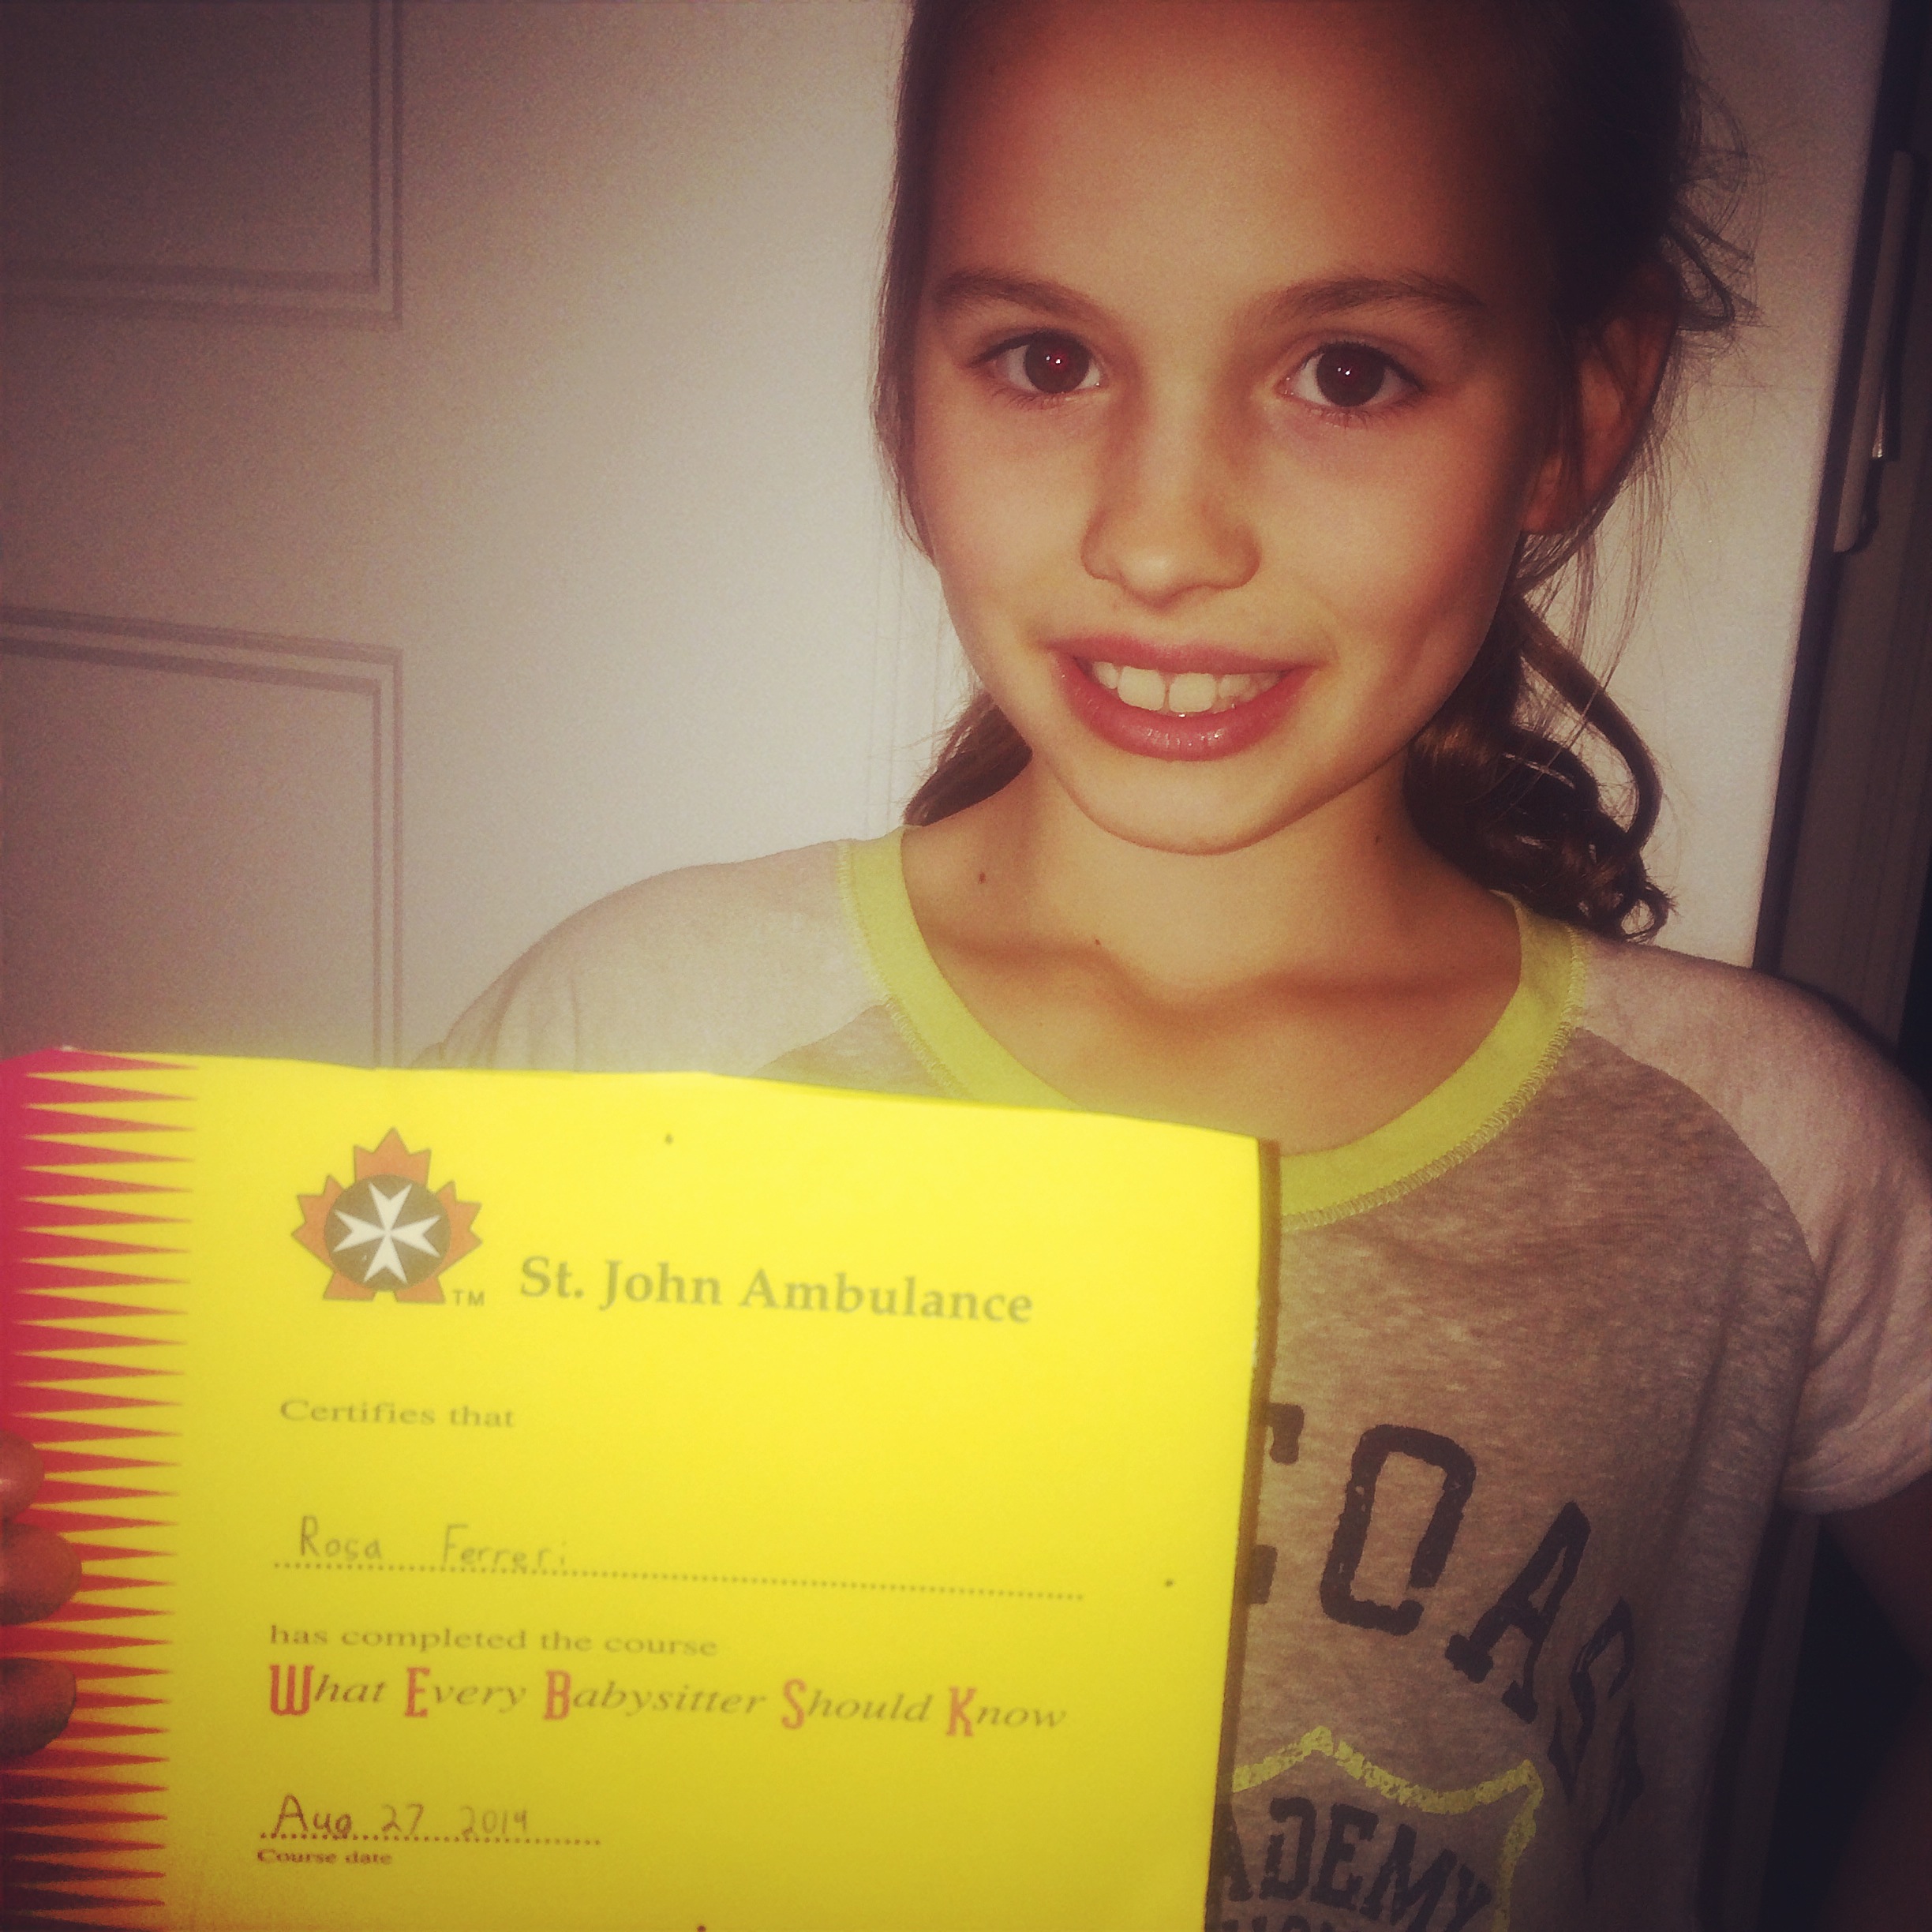 TM
St. John Ambulance
Certifies that
Rosa Ferreri
has completed the course
What Every Babysitter Should Know
Aug 27 2014
Course date
COAST
ADEMY